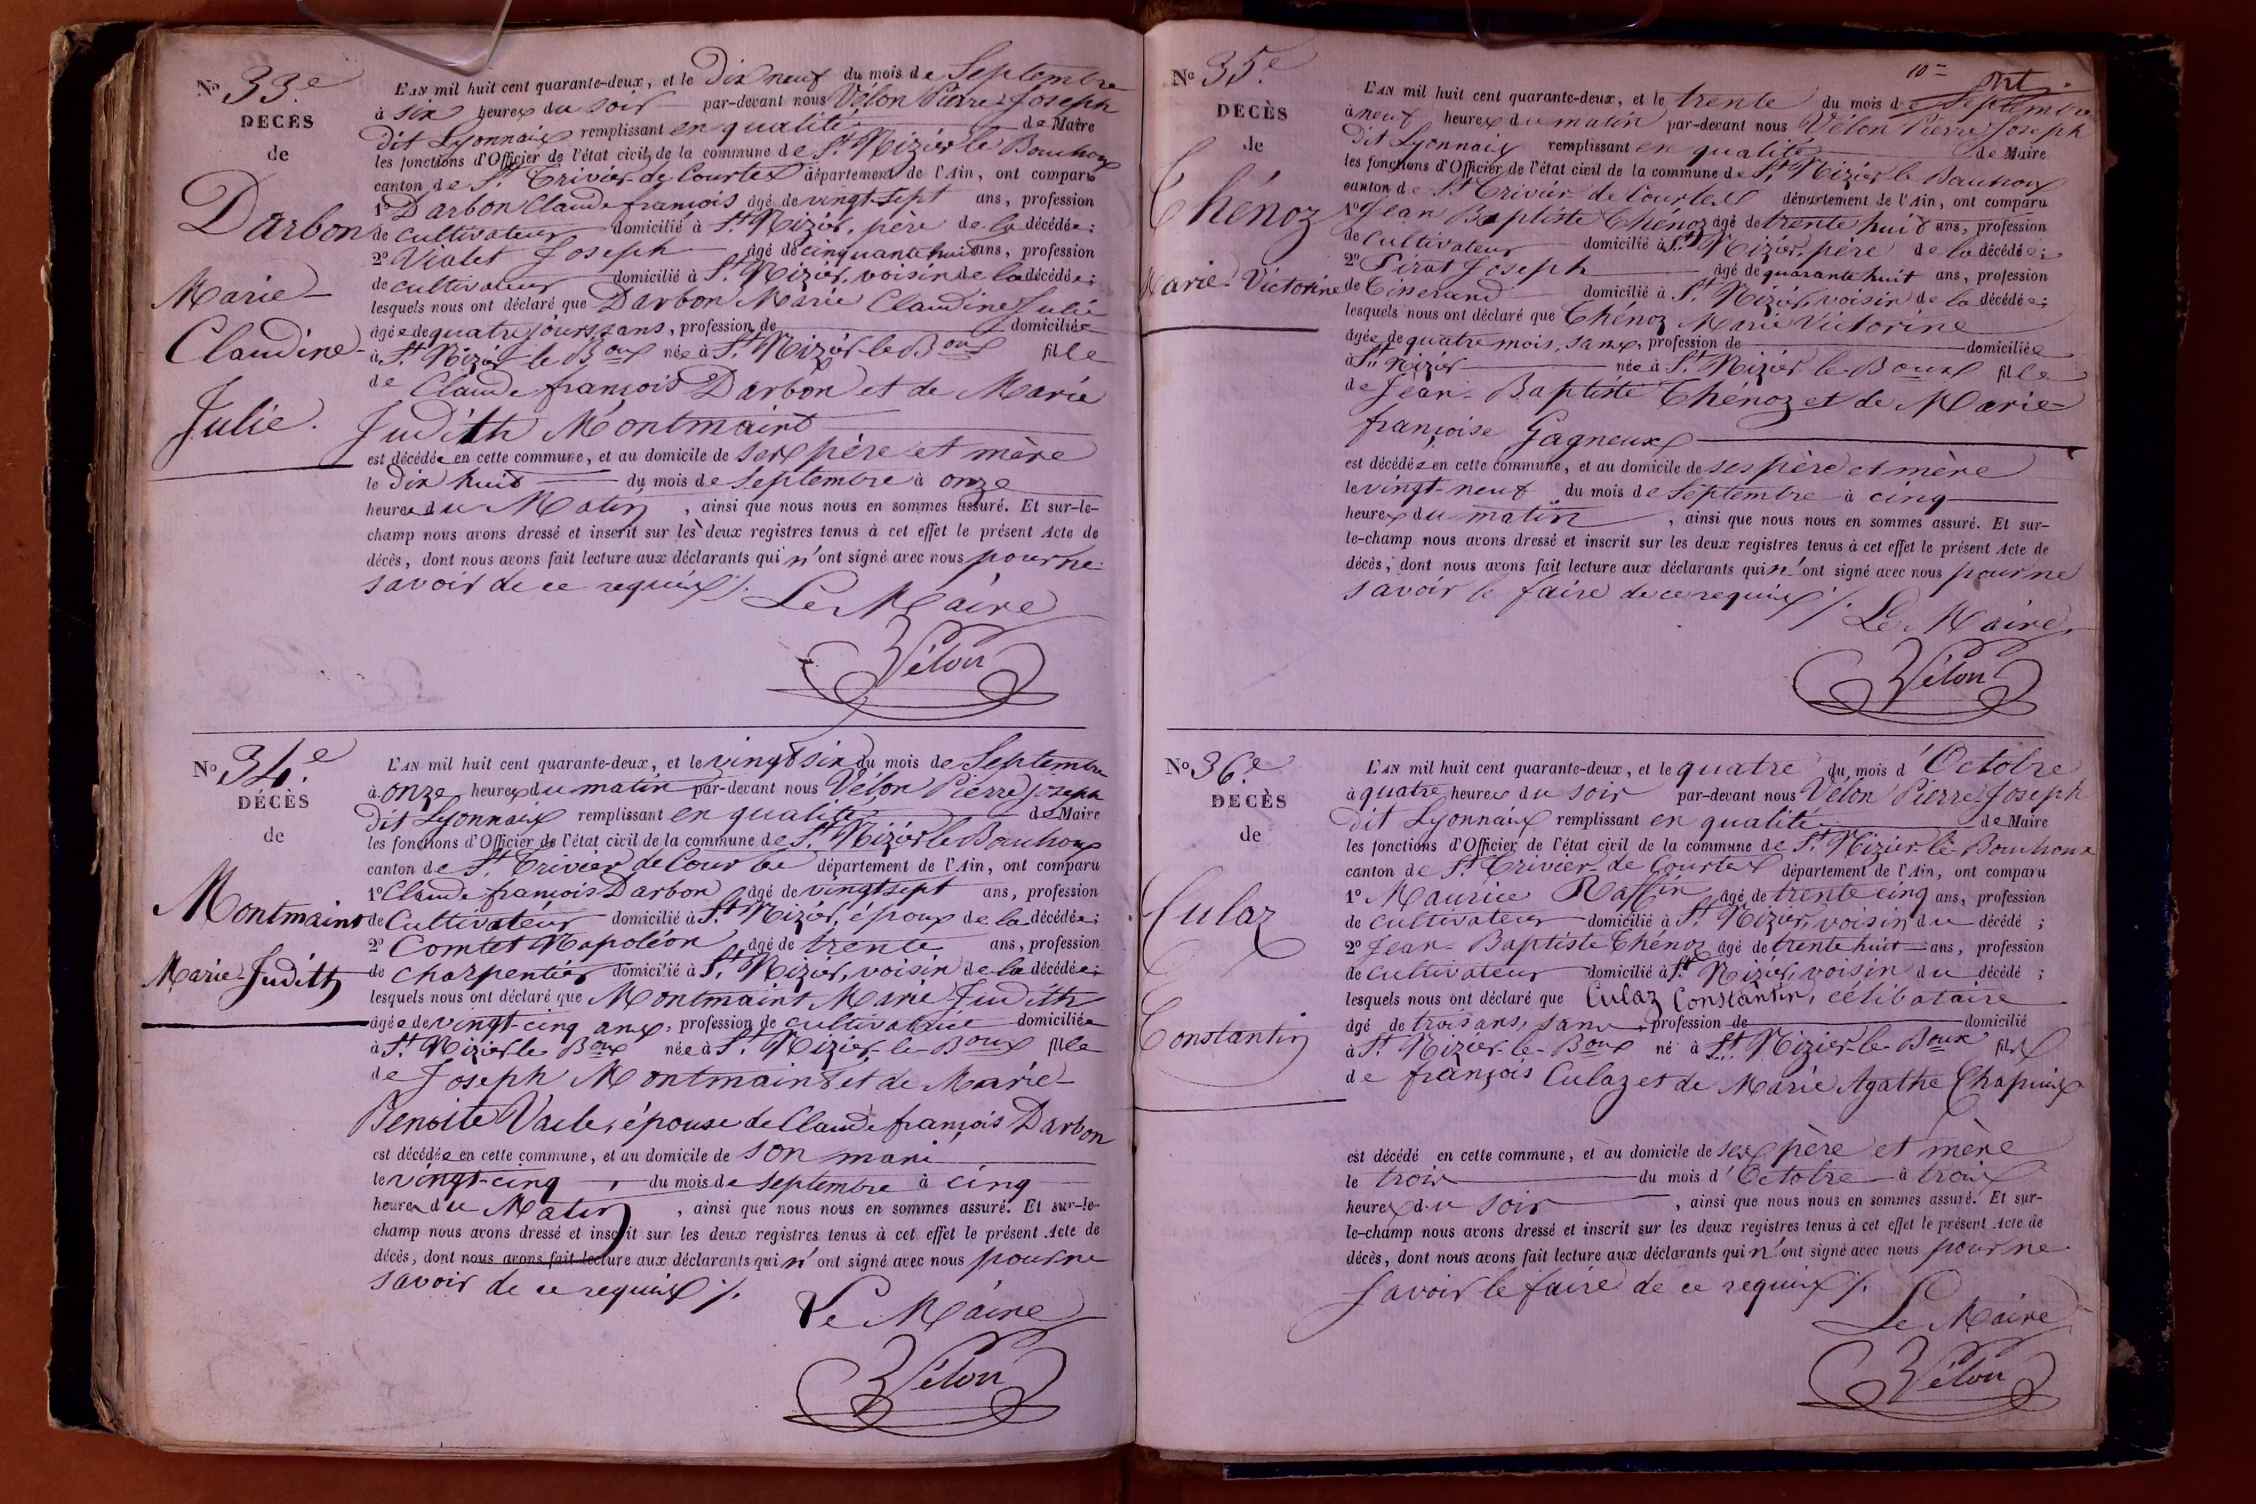 No 33.e
DECÈS
de
Darbon
Marie
Claudine
Julie.
L'AN mil huit cent quarante-deux, et le Dix neuf du mois de Septembre
à six heures du soir par-devant nous Vélon Pierre Joseph
dit Lyonnais remplissant en qualité de Maire
les fonctions d'Officier de l'état civil de la commune de St. Nizier le Bouchoux
canton de St. Trivier de Courtes département de l'Ain, ont comparu
1o Darbon Claude françois âgé de vingt-sept ans, profession
de cultivateur domicilié à St. Nizier, père de la décédée;
2o Vialet Joseph âgé de cinquante huit ans, profession
de cultivateur domicilié à St. Nizier, voisin de la décédée;
lesquels nous ont déclaré que Darbon Marie Claudine Julie
âgée de quatre jours, sans, profession de domiciliée
à St. Nizier le Boux née à St. Nizier le Boux fille
de Claude françois Darbon et de Marie
Judith Montmaint
est décédée en cette commune, et au domicile de ses père et mère
le dix huit du mois de Septembre à onze
heures du Matin, ainsi que nous nous en sommes assuré. Et sur-le-
champ nous avons dressé et inscrit sur les deux registres tenus à cet effet le présent Acte de
décès, dont nous avons fait lecture aux déclarants qui n'ont signé avec nous pour ne
savoir de ce requis ./.
Le Maire
Vélon
No 34.e
DÉCÈS
de
Montmaint
Marie-Judith
L'AN mil huit cent quarante-deux, et le vingt six du mois de Septembre
à onze heures du matin par-devant nous Vélon Pierre Joseph
dit Lyonnais remplissant en qualité de Maire
les fonctions d'Officier de l'état civil de la commune de St. Nizier le Bouchoux
canton de St. Trivier de Courtes département de l'Ain, ont comparu
1o Claude françois Darbon âgé de vingt sept ans, profession
de Cultivateur domicilié à St. Nizier, époux de la décédée;
2o Comtet Napoléon âgé de trente ans, profession
de charpentier domicilié à St. Nizier, voisin de la décédée;
lesquels nous ont déclaré que Montmaint Marie Judith
âgée de vingt-cinq ans, profession de cultivatrice domiciliée
à St. Nizier le Boux née à St. Nizier-le-Boux fille
de Joseph Montmaint et de Marie
Benoite Vacle, épouse de Claude françois Darbon
est décédée en cette commune, et au domicile de son mari
le vingt-cinq, du mois de septembre à cinq
heures du Matin, ainsi que nous nous en sommes assuré. Et sur-le-
champ nous avons dressé et inscrit sur les deux registres tenus à cet effet le présent Acte de
décès, dont nous avons fait lecture aux déclarants qui n'ont signé avec nous pour ne
savoir de ce requis ./.
Le Maire
Vélon
No 35.e
DECÈS
de
Thénoz
Marie-Victorine
L'AN mil huit cent quarante-deux, et le trente du mois de Septembre
à neuf heures du matin par-devant nous Vélon Pierre Joseph
dit Lyonnais remplissant en qualité de Maire
les fonctions d'Officier de l'état civil de la commune de St. Nizier le Bouchoux
canton de St. Trivier de Courtes département de l'Ain, ont comparu
1o Jean Baptiste Thénoz âgé de trente huit ans, profession
de cultivateur domicilié à St. Nizier, père de la décédée;
2o Pirat Joseph âgé de quarante huit ans, profession
de Tisserand domicilié à St. Nizier, voisin de la décédée;
lesquels nous ont déclaré que Thénoz Marie Victorine
âgée de quatre mois, sans, profession de domiciliée
à St. Nizier née à St. Nizier le Boux fille
de Jean-Baptiste Thénoz et de Marie
françoise Gagneux
est décédée en cette commune, et au domicile de ses père et mère
le vingt-neuf du mois de Septembre à cinq
heures du matin, ainsi que nous nous en sommes assuré. Et sur-
le-champ nous avons dressé et inscrit sur les deux registres tenus à cet effet le présent Acte de
décès, dont nous avons fait lecture aux déclarants qui n'ont signé avec nous pour ne
savoir le faire de ce requis ./.
Le Maire
Vélon
No 36.e
DECÈS
de
Culaz
Constantin
L'AN mil huit cent quarante-deux, et le quatre du mois d'Octobre
à quatre heures du soir par-devant nous Vélon Pierre-Joseph
dit Lyonnais remplissant en qualité de Maire
les fonctions d'Officier de l'état civil de la commune de St. Nizier-le-Bouchoux
canton de St. Trivier-de Courtes département de l'Ain, ont comparu
1o Maurice Raffin âgé de trente cinq ans, profession
de cultivateur domicilié à St. Nizier, voisin du décédé;
2o Jean-Baptiste Thénoz âgé de trente huit ans, profession
de cultivateur domicilié à St. Nizier, voisin du décédé;
lesquels nous ont déclaré que Culaz Constantin, célibataire
âgé de trois ans, sans, profession de domicilié
à St. Nizier-le-Boux né à St. Nizier-le-Boux fils
de françois Culaz et de Marie Agathe Chapuis
est décédé en cette commune, et au domicile de ses père et mère
le trois du mois d'Octobre à trois
heures du soir, ainsi que nous nous en sommes assuré. Et sur-
le-champ nous avons dressé et inscrit sur les deux registres tenus à cet effet le présent Acte de
décès, dont nous avons fait lecture aux déclarants qui n'ont signé avec nous pour ne
savoir le faire de ce requis ./.
Le Maire
Vélon